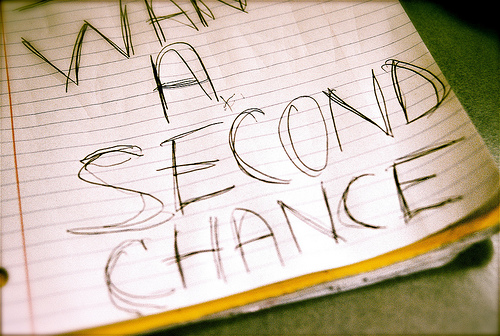 WAN
A
SECOND
CHANCE